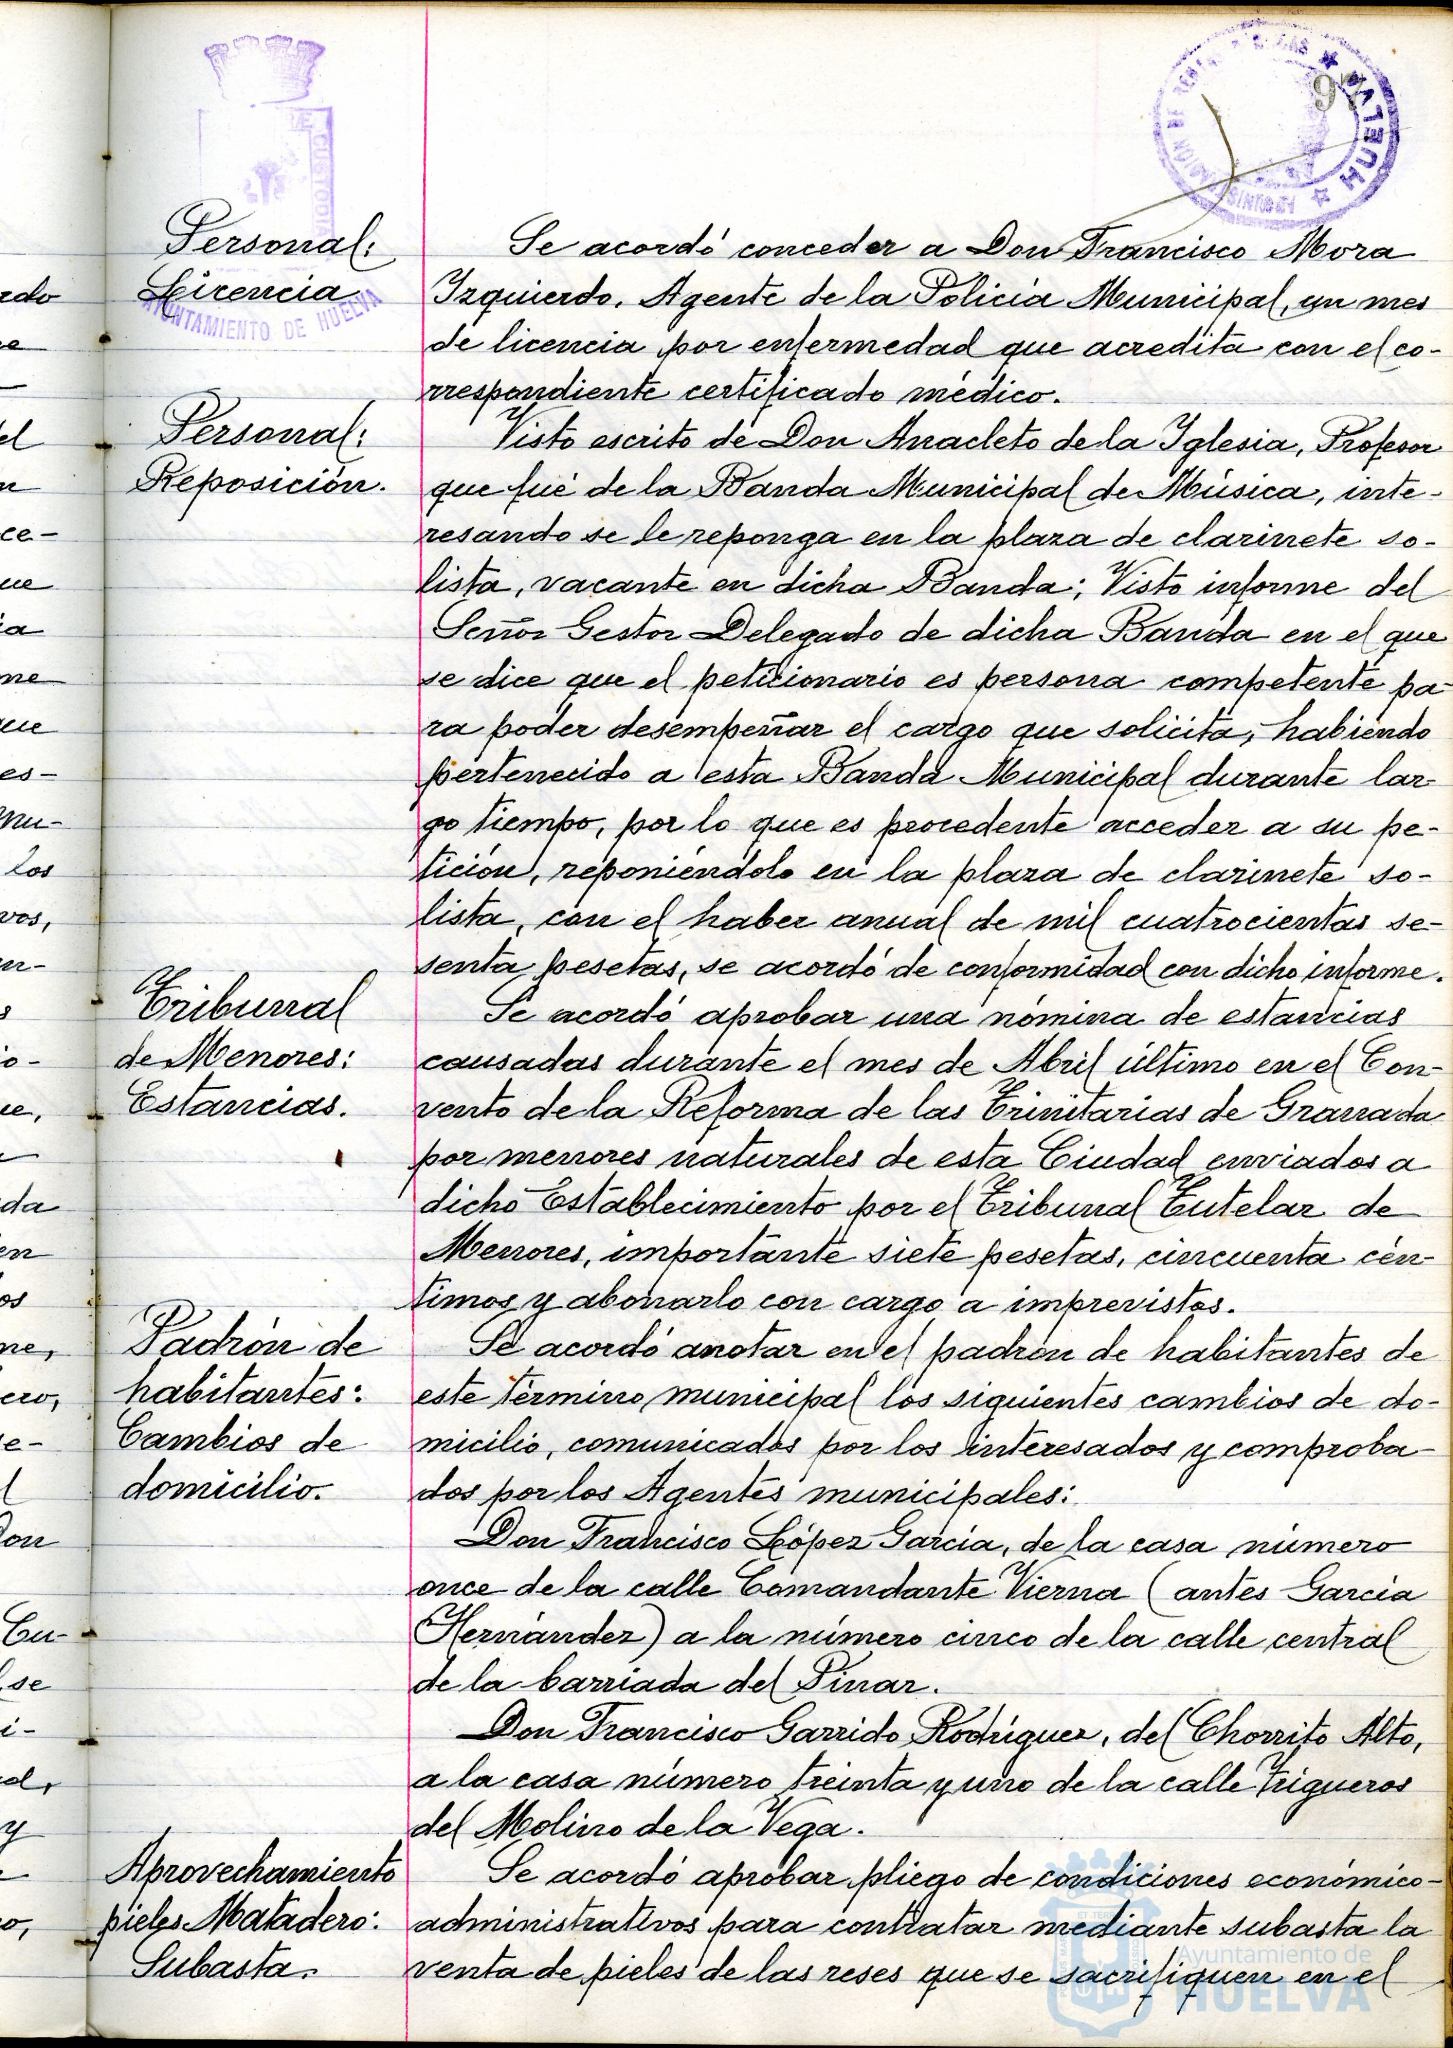 97
ADMINISTRACIÓN DE RENTAS
HUELVA
AYUNTAMIENTO DE HUELVA
Personal:
Licencia
Se acordó conceder a Don Francisco Mora
Izquierdo, Agente de la Policía Municipal, un mes
de licencia por enfermedad que acredita con el co-
rrespondiente certificado médico.
Personal:
Reposición.
Visto escrito de Don Anacleto de la Iglesia, Profesor
que fué de la Banda Municipal de Música, inte-
resando se le reponga en la plaza de clarinete so-
lista, vacante en dicha Banda; Visto informe del
Señor Gestor Delegado de dicha Banda en el que
se dice que el peticionario es persona competente pa-
ra poder desempeñar el cargo que solicita, habiendo
pertenecido a esta Banda Municipal durante lar-
go tiempo, por lo que es procedente acceder a su pe-
tición, reponiéndolo en la plaza de clarinete so-
lista, con el haber anual de mil cuatrocientas se-
senta pesetas, se acordó de conformidad con dicho informe.
Tribunal
de Menores:
Estancias.
Se acordó aprobar una nómina de estancias
causadas durante el mes de Abril último en el Con-
vento de la Reforma de las Trinitarias de Granada
por menores naturales de esta Ciudad enviados a
dicho Establecimiento por el Tribunal Tutelar de
Menores, importante siete pesetas, cincuenta cén-
timos y abonarlo con cargo a imprevistos.
Padrón de
habitantes:
Cambios de
domicilio.
Se acordó anotar en el padrón de habitantes de
este término municipal los siguientes cambios de do-
micilio, comunicados por los interesados y comproba-
dos por los Agentes municipales:
Don Francisco López García, de la casa número
once de la calle Comandante Vierna (antes García
Hernández) a la número cinco de la calle central
de la barriada del Pinar.
Don Francisco Garrido Rodríguez, del Chorrito Alto,
a la casa número treinta y uno de la calle Trigueros
del Molino de la Vega.
Aprovechamiento
pieles Matadero:
Subasta.
Se acordó aprobar pliego de condiciones económico-
administrativos para contratar mediante subasta la
venta de pieles de las reses que se sacrifiquen en el
Ayuntamiento de
HUELVA